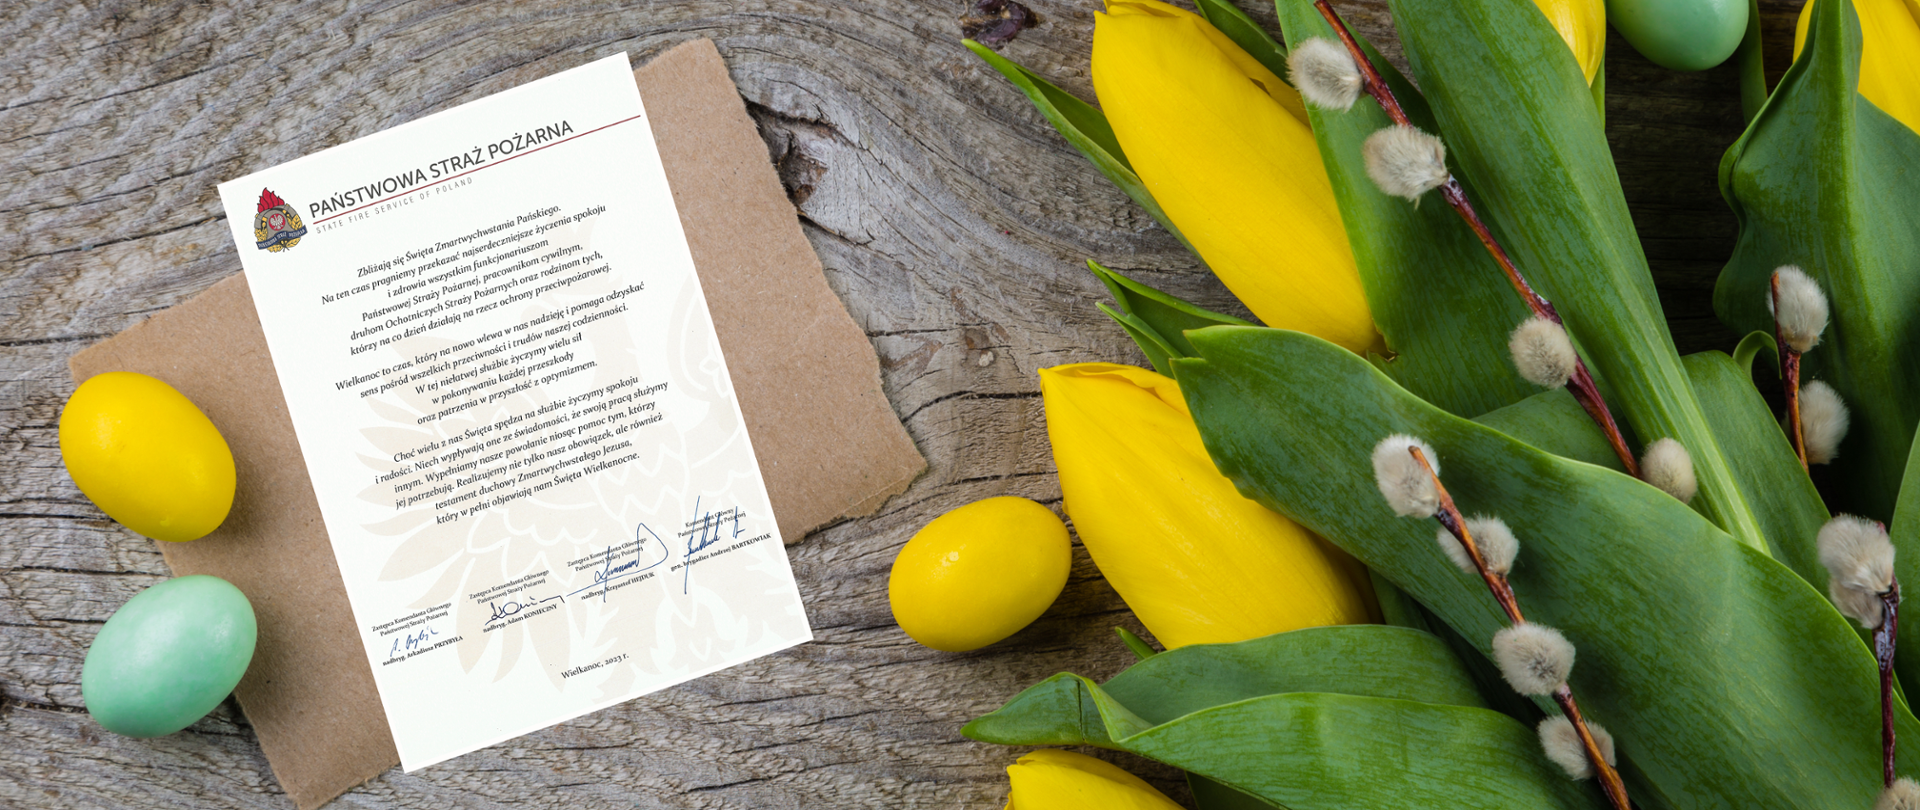 PAŃSTWOWA STRAŻ POŻARNA
STATE FIRE SERVICE OF POLAND
PAŃSTWOWA STRAŻ POŻARNA
Zbliżają się Święta Zmartwychwstania Pańskiego.
Na ten czas pragniemy przekazać najserdeczniejsze życzenia spokoju
i zdrowia wszystkim funkcjonariuszom
Państwowej Straży Pożarnej, pracownikom cywilnym,
druhom Ochotniczych Straży Pożarnych oraz rodzinom tych,
którzy na co dzień działają na rzecz ochrony przeciwpożarowej.
Wielkanoc to czas, który na nowo wlewa w nas nadzieję i pomaga odzyskać
sens pośród wszelkich przeciwności i trudów naszej codzienności.
W tej niełatwej służbie życzymy wielu sił
w pokonywaniu każdej przeszkody
oraz patrzenia w przyszłość z optymizmem.
Choć wielu z nas Święta spędza na służbie życzymy spokoju
i radości. Niech wypływają one ze świadomości, że swoją pracą służymy
innym. Wypełniamy nasze powołanie niosąc pomoc tym, którzy
jej potrzebują. Realizujemy nie tylko nasz obowiązek, ale również
testament duchowy Zmartwychwstałego Jezusa,
który w pełni objawiają nam Święta Wielkanocne.
Zastępca Komendanta Głównego
Państwowej Straży Pożarnej
nadbryg. Arkadiusz PRZYBYŁA
Zastępca Komendanta Głównego
Państwowej Straży Pożarnej
nadbryg. Adam KONIECZNY
Zastępca Komendanta Głównego
Państwowej Straży Pożarnej
nadbryg. Krzysztof HEJDUK
Komendant Główny
Państwowej Straży Pożarnej
gen. brygadier Andrzej BARTKOWIAK
Wielkanoc, 2023 r.